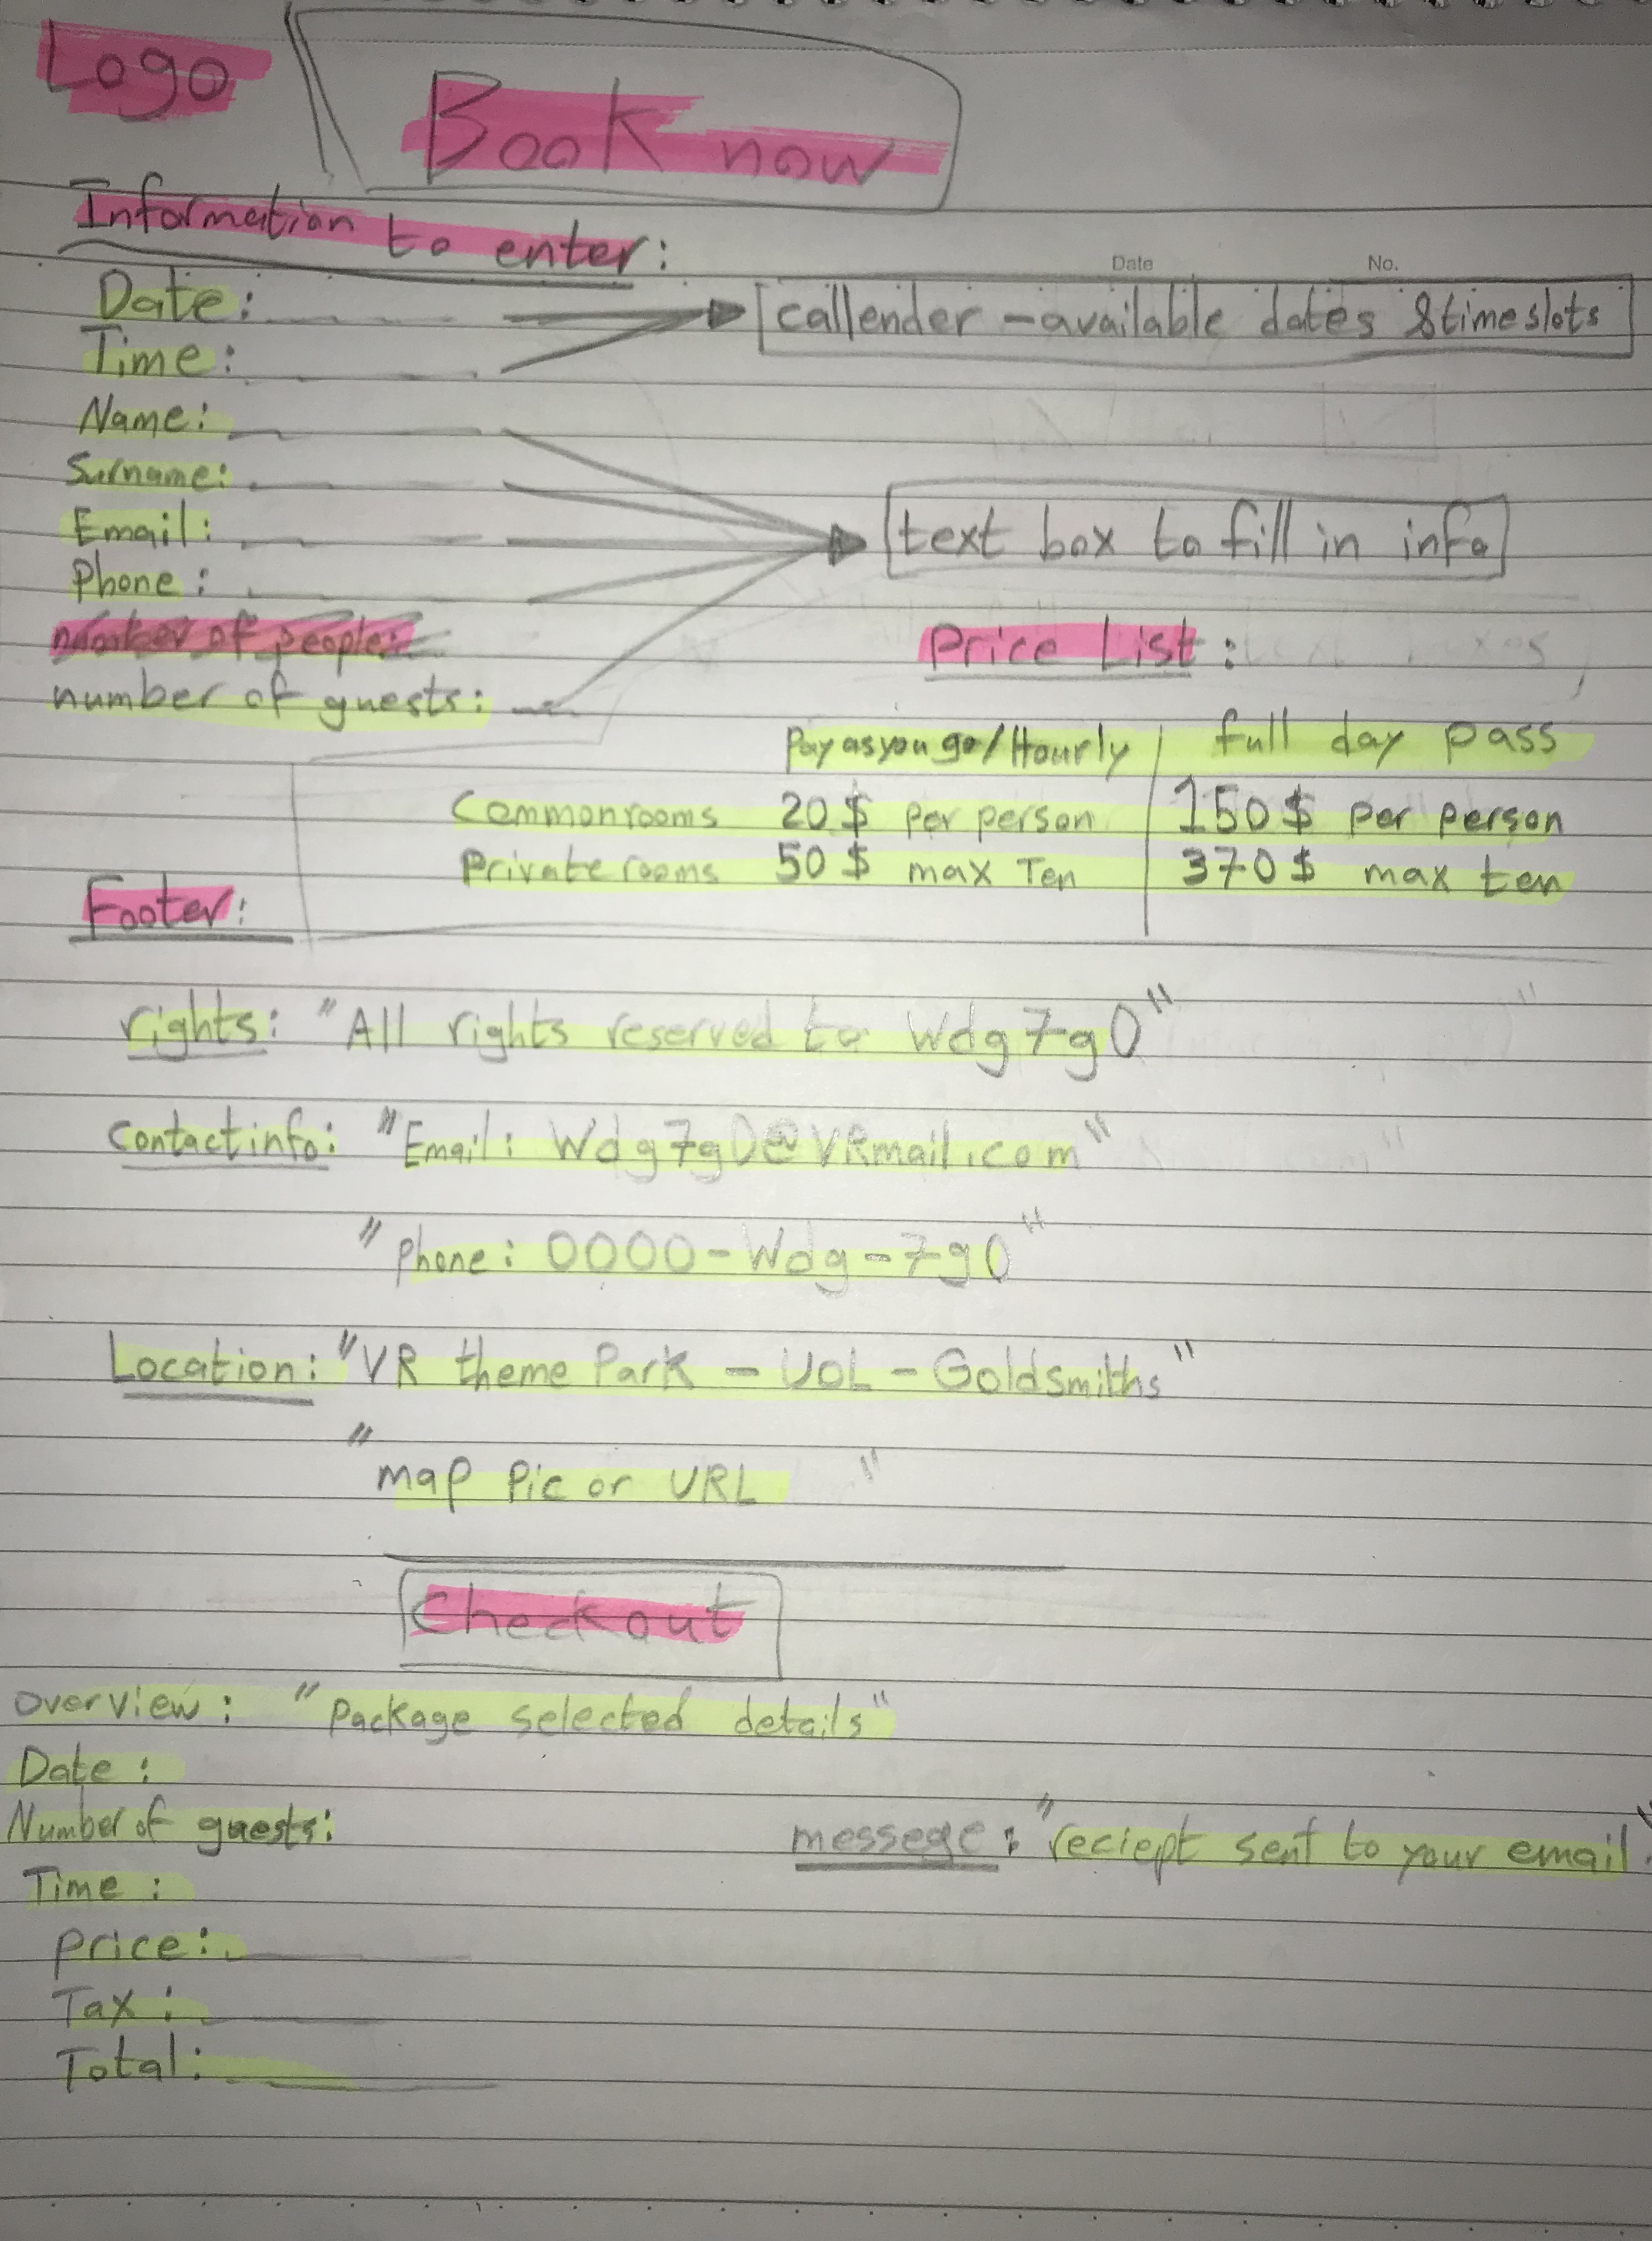 Logo
Book now
Information to enter:
Date No.
Date: callender - available dates & timeslots
Time:
Name:
Surname:
Email: text box to fill in info
Phone:
number of people:
Price List:
number of guests:
Pay as you go/Hourly full day pass
Common rooms 20$ per person 150$ per person
Private rooms 50$ max Ten 370$ max ten
Footer:
rights: "All rights reserved to Wdg7g0"
Contact info: "Email: Wdg7g0@VRmail.com"
"Phone: 0000-Wdg-7g0"
Location: "VR theme Park - UOL - Goldsmiths"
"map Pic or URL"
Checkout
overview: "Package selected details"
Date:
Number of guests:
messege: "reciept sent to your email."
Time:
Price:
Tax:
Total: